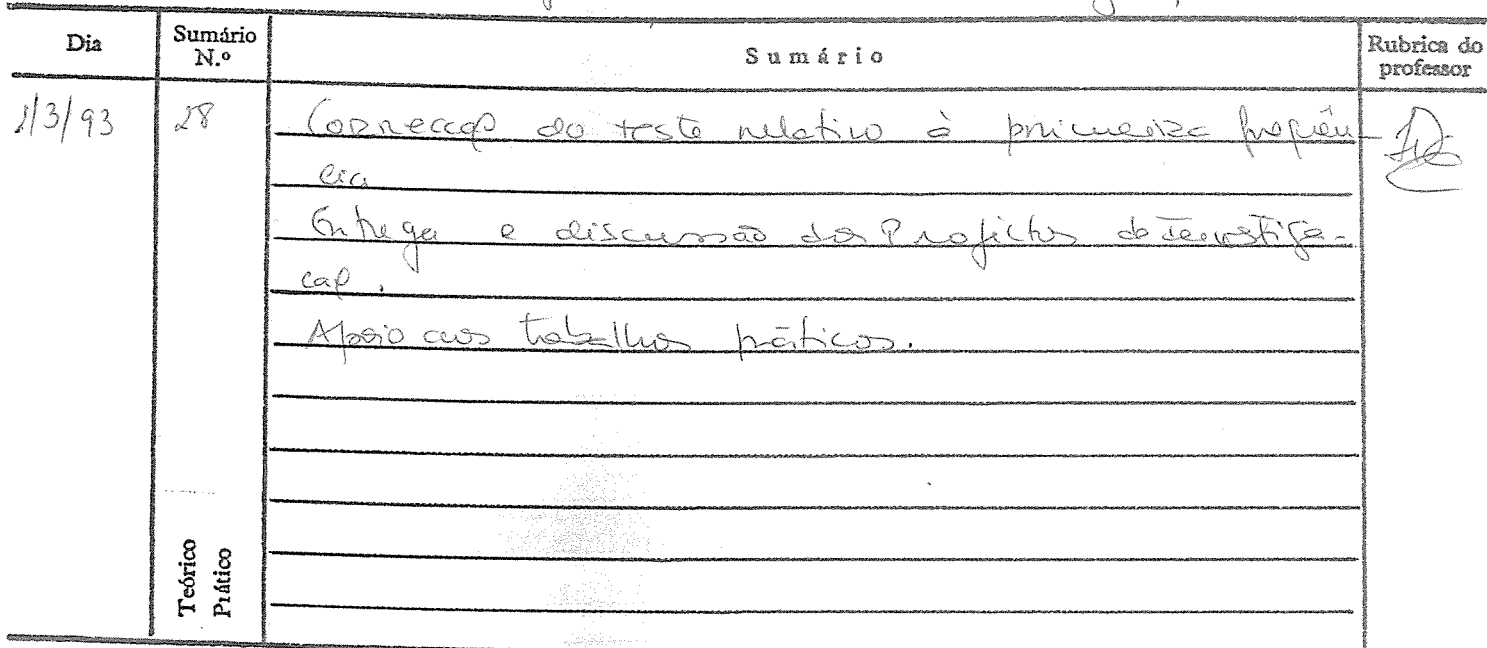 Dia Sumário N.º Sumário Rubrica do professor
1/3/93 28 Correcção do teste relativo à primeira frequên-
cia
Entrega e discussão dos Projectos de Investiga-
ção.
Apoio aos trabalhos práticos.
Teórico
Prático